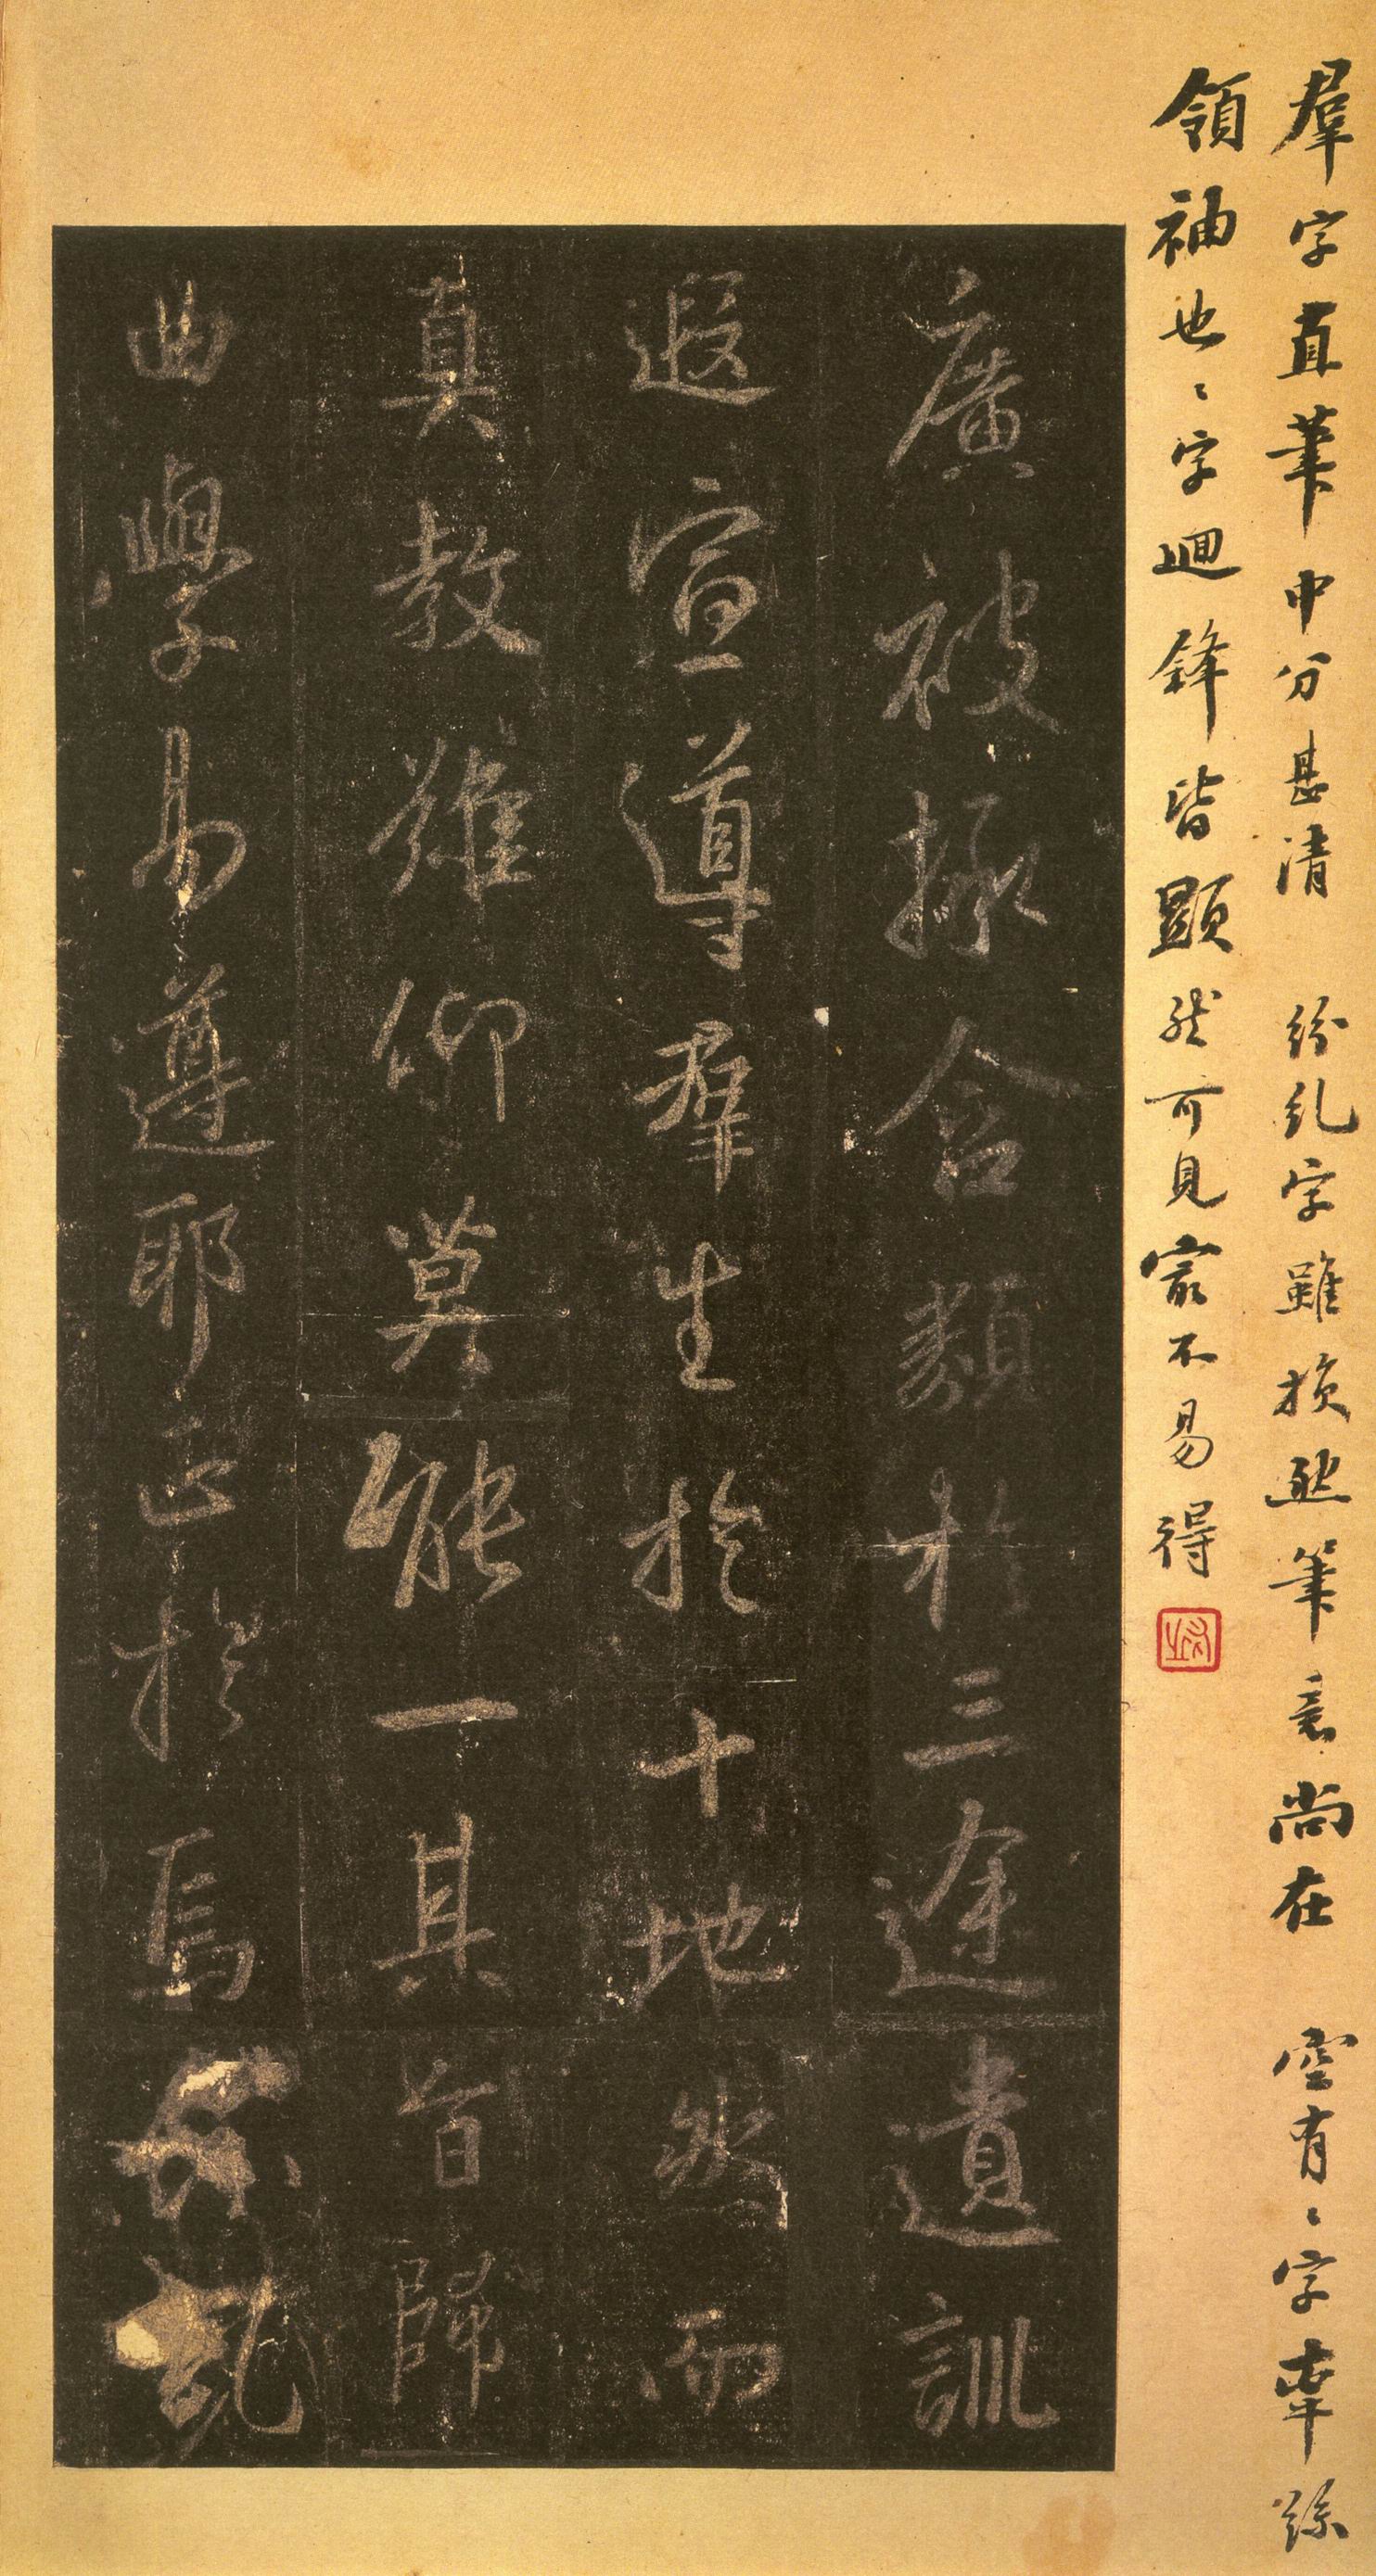 羣字直筆中分甚清 紛糺字雖損然筆意尚在 空有〻字牽絲
領袖也〻字迴鋒皆顯然可見最不易得
廣被拯含類於三途遺訓
遐宣導羣生於十地然而
真教難仰莫能一其旨歸
曲學易遵耶正於焉紛糺